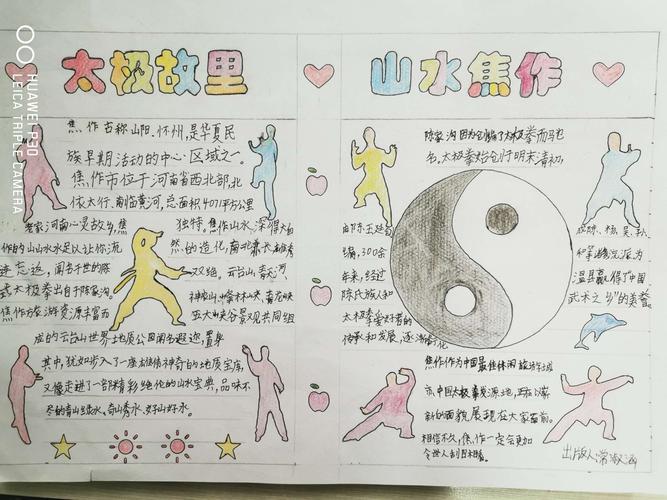 太极故里
山水焦作
焦作古称山阳、怀州，是华夏民
族早期活动的中心区域之一。
焦作市位于河南省西北部，北
依太行，南临黄河，总面积4071平方公里
老家河南心灵故乡，焦
作的山山水水足以让你流
连忘返，闻名于世的陈
式太极拳出自于陈家沟。
焦作方旅游资源丰富而
独特。焦作山水深得大自
然的造化，南北兼长
双绝，云台山、青天河、
神农山、峰林峡、青龙峡
五大山岳谷景观共同组
成的云台山世界地质公园闻名遐迩，置身
其中，犹如步入了一座古怪神奇的地质宝库，
又像走进了一部精彩绝伦的山水宝典，品味不
尽的青山绿水、奇山秀水、好山好水。
陈家沟因为创编了太极拳而驰
名。太极拳始创于明末清初，
由陈王廷创
编，300余
年来，经过
陈氏族人和
太极拳爱好者的
传承和发展，逐渐
成陈、杨、吴、孙
和等诸流派为
温县赢得了中国
武术之乡"的美誉。
焦作作为中国最佳休闲旅游城
市，中国太极拳发源地，正在以崭
新的面貌展现在大家面前。
相信不久，焦作一定会更加
令世人刮目相看。
出版人:常
HUAWEI P30
LEICA TRIPLE CAMERA